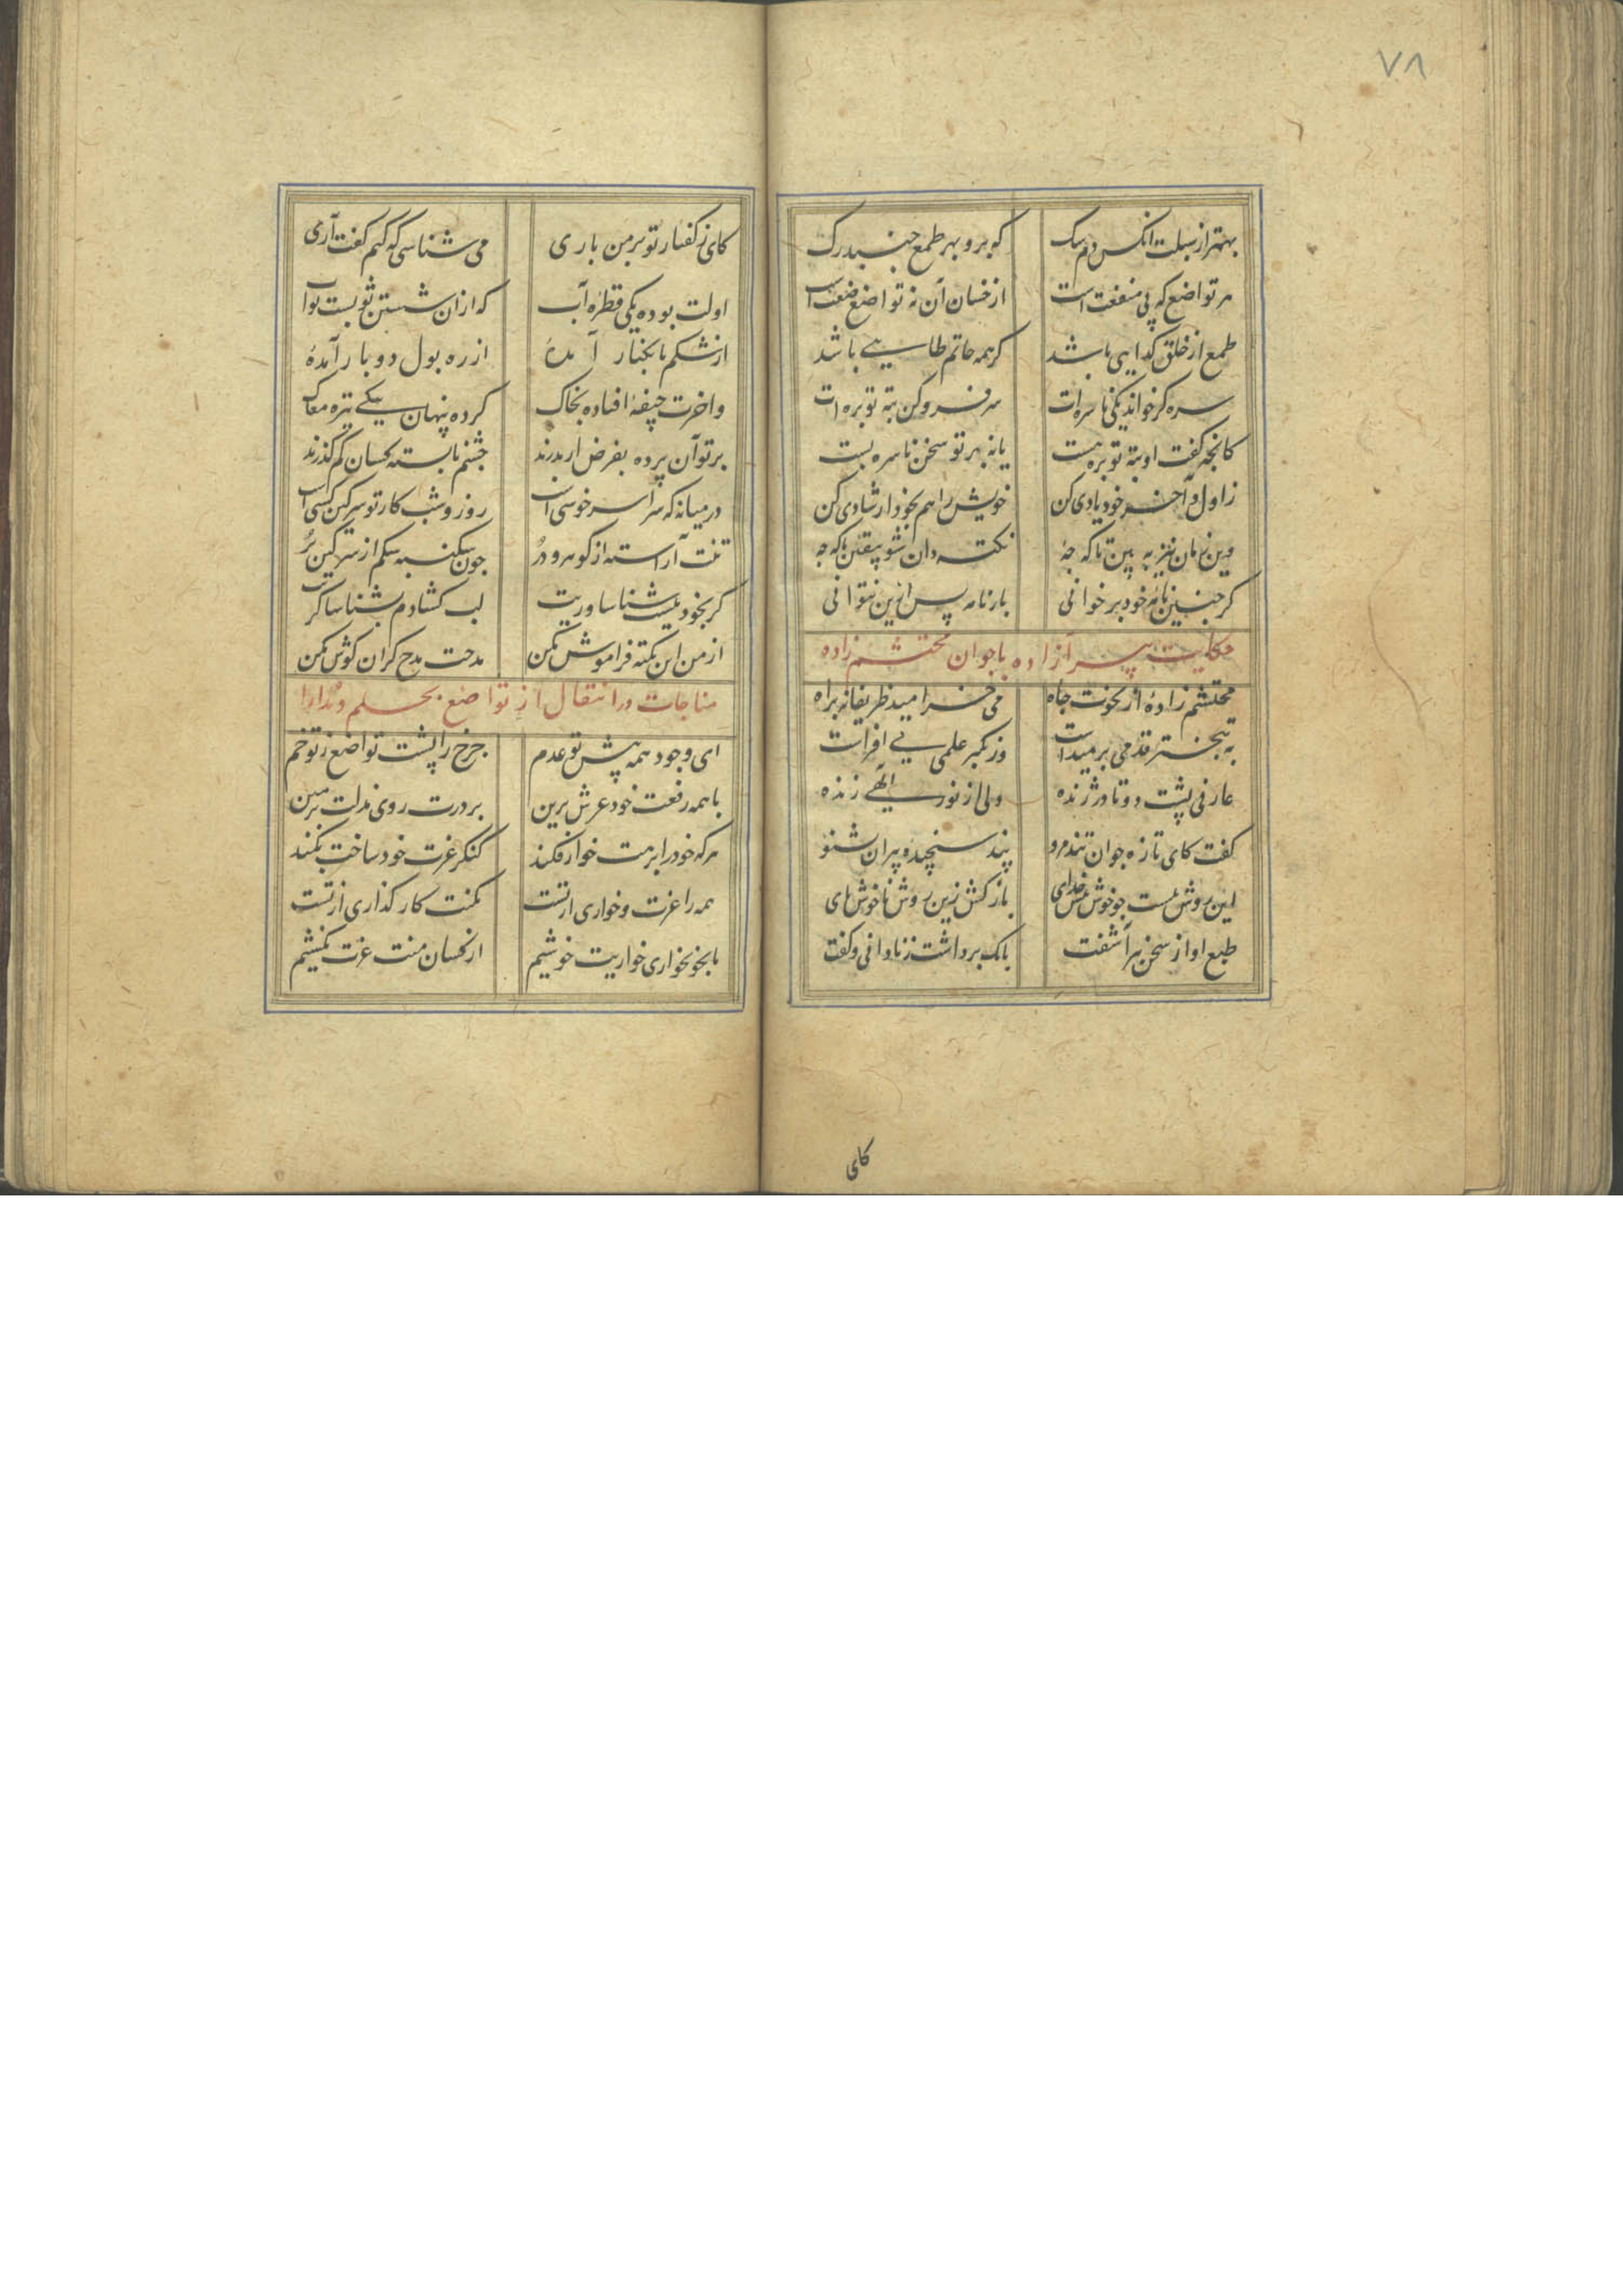 ۷۸
بهتر از سبلت آنکس دم سک که بر و بهر طمع جنبد رک
هر تواضع که پی منفعت است از خسان آن نه تواضع ضعت است
طمع از خلق کدایی باشد کر همه حاتم طایی باشد
سره کر خواند یکی ناسره ات سر فرو کن بته توبره ات
کانچه گفت او بته توبره هست یا نه بهر تو سخن ناسره بست
ز اول و آخر خود یادی کن خویش را هم بخود ارشادی کن
وین زمان نیز به بین تا که چهٔ نکته دان شو بیقین تا که چهٔ
کر چنین نامهٔ خود بر خوانی بارنامه پس ازین نتوانی
حکایت پیر آزاده با جوان محتشم زاده
محتشم زادهٔ از نخوت جاه می خرامید ظریفانه براه
به تبختر قدمی بر میداشت وز تکبر علمی می افراشت
عارفی پشت دوتا در ژنده ولی از نور الهی زنده
گفت کای تازه جوان تند مرو پند سنجیدهٔ پیران شنو
این روش نیست چو خوش پیش خدای باز کش زین روش ناخوش پای
طبع او از سخن پیر آشفت بانک برداشت ز نادانی و گفت
کای
کای ز کفتار تو بر من باری می شناسی که کیم گفت آری
اولت بوده یکی قطره آب که ازان شستن ثوبست ثواب
از شکم تا بکنار آمدهٔ از ره بول دو بار آمدهٔ
و اخرت جیفهٔ افتاده بخاک کرده پنهان یکی تیره مغاک
بر تو آن پرده بفرض ار بدرند چشم نابسته کسان کم گذرند
در میانه که سرا سر خوشی است روز و شب کار تو سرکین کشی است
تنت آراسته از گوهر و در چون سکنبه شکم از سرکین پر
کر بخود نیست شناساوریت لب کشادم بشناساکریت
از من این نکته فراموش مکن مدحت مدح کران گوش مکن
مناجات در انتقال از تواضع بحلم و مدارا
ای وجود همه پیش تو عدم چرخ را پشت تواضع ز تو خم
با همه رفعت خود عرش برین بر درت روی مذلت بزمین
هر که خود را برهت خوار فکند کنکر عزت خود ساخت بلند
همه را عزت و خواری از تست مکنت کار کذاری از تست
ما بخونخواری خواریت خوشیم از کسان منت عزت نکشیم